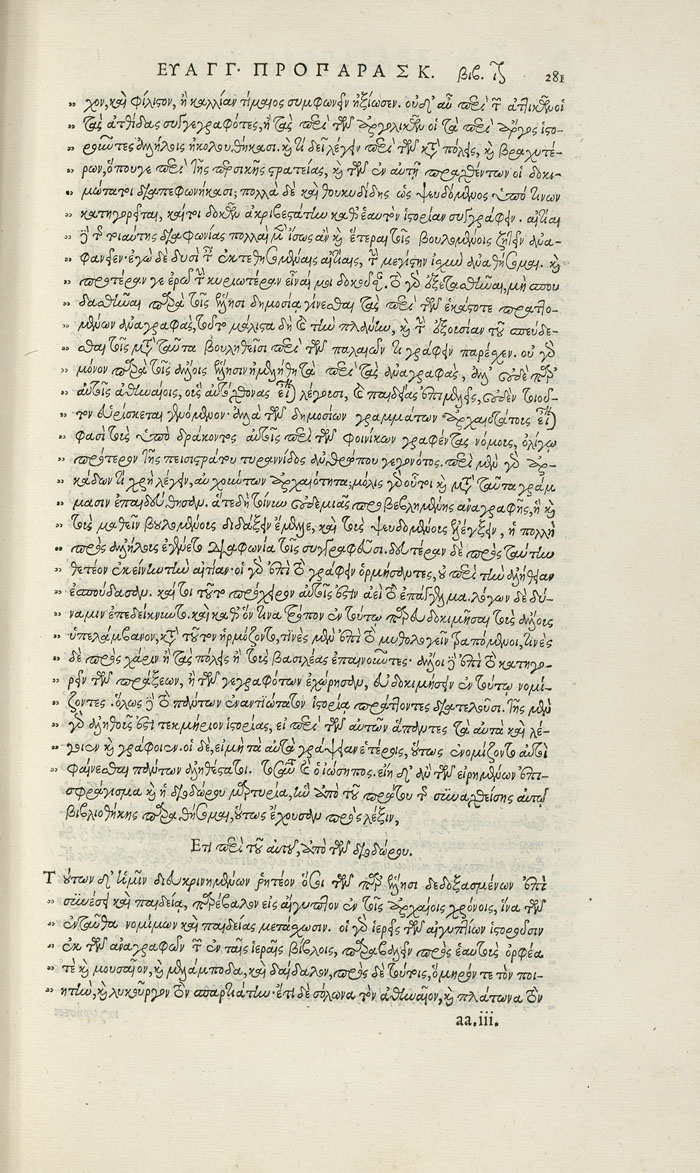 ΕΥΑΓΓ. ΠΡΟΠΑΡΑΣΚ. βιβ. ῑ 281
χον, καὶ φίλιστον, ἢ καλλίαν τίμαιος συμφωνεῖν ἠξίωσεν. οὐδ' αὖ περὶ τῶν ἀττικῶν οἱ
τὰς ἀτθίδας συγγεγραφότες, ἢ τὰς περὶ τῶν ἀργολικῶν οἱ τὰ περὶ ἄργος ἱστο-
ροῦντες ἀλλήλοις ἠκολουθήκασι. καὶ τί δεῖ λέγειν περὶ τῶν κατὰ πόλεις, καὶ βραχυτέ-
ρων, ὅπουγε περὶ τῆς περσικῆς στρατείας, καὶ τῶν ἐν αὐτῇ πραχθέντων οἱ δοκι-
μώτατοι διαπεφωνήκασι; πολλὰ δὲ καὶ θουκυδίδης ὡς ψευδόμενος ὑπό τινων
κατηγορεῖται, καίτοι δοκῶν ἀκριβεστάτην καθ' ἑαυτὸν ἱστορίαν συγγράφειν. αἰτίαι
δὲ τῆς τοιαύτης διαφωνίας πολλαὶ μὲν ἴσως ἂν καὶ ἕτεραι τοῖς βουλομένοις ζητεῖν ἀνα-
φανεῖεν· ἐγὼ δὲ δυσὶ ταῖς ἐκτεθησομέναις αἰτίαις, τὴν μεγίστην ἰσχὺν ἀναθήσομαι. καὶ
προτέραν γε ἐρῶ τὴν κυριωτέραν εἶναί μοι δοκοῦσαν. τὸ γὰρ ἐξεταθῆναι, μὴ σπου
δαθῆναι παρὰ τοῖς ἕλλησι δημοσίᾳ γίνεσθαι τὰς περὶ τῶν ἑκάστοτε πραττο-
μένων ἀναγραφάς, τοῦτο μάλιστα δὴ καὶ τὴν πλάνην, καὶ τὴν ἐξουσίαν τοῦ ψεύδε-
σθαι τοῖς μετὰ ταῦτα βουληθεῖσι περὶ τῶν παλαιῶν τι γράφειν παρέσχεν. οὐ γὰρ
μόνον παρὰ τοῖς ἄλλοις ἕλλησιν ἠμελήθη τὰ περὶ τὰς ἀναγραφάς, ἀλλ' οὐδὲ παρ'
αὐτοῖς ἀθηναίοις, οὓς αὐτόχθονας εἶναι λέγουσι, καὶ παιδείας ἐπιμελεῖς, οὐδὲν τοιοῦ-
τον εὑρίσκεται γενόμενον· ἀλλὰ τῶν δημοσίων γραμμάτων ἀρχαιοτάτους εἶναί
φασι τοὺς ὑπὸ δράκοντος αὐτοῖς περὶ τῶν φονικῶν γραφέντας νόμους, ὀλίγῳ
πρότερον τῆς πεισιστράτου τυραννίδος ἀνθρώπου γεγονότος. περὶ μὲν γὰρ ἀρ-
κάδων τί χρὴ λέγειν, αὐχούντων ἀρχαιότητα; μόλις γὰρ οὗτοι καὶ μετὰ ταῦτα γράμ
μασιν ἐπαιδεύθησαν. ἅτε δὴ τοίνυν οὐδεμιᾶς προβεβλημένης ἀναγραφῆς, ἣ καὶ
τοὺς μαθεῖν βουλομένους διδάξειν ἔμελλε, καὶ τοὺς ψευδομένους ἐλέγξειν, ἡ πολλὴ
πρὸς ἀλλήλους ἐγένετο διαφωνία τοῖς συγγραφεῦσι. δευτέραν δὲ πρὸς ταύτην
θετέον ἐκείνην τὴν αἰτίαν· οἱ γὰρ ἐπὶ τὸ γράφειν ὁρμήσαντες, οὐ περὶ τὴν ἀλήθειαν
ἐσπούδασαν. καίτοι τοῦτο πρόχειρον αὐτοῖς ἐστιν ἀεὶ τὸ ἐπάγγελμα. λόγων δὲ δύ-
ναμιν ἐπεδείκνυντο. καὶ καθ' ὅν τινα τρόπον ἐν τούτῳ παρευδοκιμῆσαι τοὺς ἄλλους
ὑπελάμβανον, κατὰ τοῦτον ἡρμόζοντο, τινὲς μὲν ἐπὶ τὸ μυθολογεῖν τραπόμενοι, τινὲς
δὲ πρὸς χάριν ἢ τὰς πόλεις ἢ τοὺς βασιλέας ἐπαινοῦντες· ἄλλοι δὲ ἐπὶ τὸ κατηγο-
ρεῖν τῶν πράξεων, ἢ τῶν γεγραφότων ἐχώρησαν, εὐδοκιμήσειν ἐν τούτῳ νομί-
ζοντες. ὅλως δὲ τὸ πάντων ἐναντιώτατον ἱστορίᾳ πράττοντες διατελοῦσι. τῆς μὲν
γὰρ ἀληθοῦς ἐστι τεκμήριον ἱστορίας, εἰ περὶ τῶν αὐτῶν ἅπαντες τὰ αὐτὰ καὶ λέ-
γοιεν καὶ γράφοιεν. οἱ δέ, εἰ μὴ τὰ αὐτὰ γράψειαν ἑτέροις, οὕτως ἐνόμιζον αὐτοὶ
φαίνεσθαι πάντων ἀληθέστατοι. ταῦτα καὶ ὁ ἰώσηπος. εἴη δ' ἂν τῶν εἰρημένων ἐπι-
σφράγισμα καὶ ἡ διοδώρου μαρτυρία, ἣν ἀπὸ τοῦ πρώτου τῆς συναχθείσης αὐτῷ
βιβλιοθήκης παραθήσομαι, οὕτως ἔχουσαν πρὸς λέξιν,
Ἔτι περὶ τοῦ αὐτοῦ, ἀπὸ τῶν διοδώρου.
Τούτων δ' ἡμῖν διευκρινημένων ῥητέον ὅσοι τῶν παρ' ἕλλησι δεδοξασμένων ἐπὶ
συνέσει καὶ παιδείᾳ, παρέβαλον εἰς αἴγυπτον ἐν τοῖς ἀρχαίοις χρόνοις, ἵνα τῶν
ἐνταῦθα νομίμων καὶ παιδείας μετάσχωσιν. οἱ γὰρ ἱερεῖς τῶν αἰγυπτίων ἱστοροῦσιν
ἐκ τῶν ἀναγραφῶν τῶν ἐν ταῖς ἱεραῖς βίβλοις, παραβαλεῖν πρὸς ἑαυτοὺς ὀρφέα
τὲ καὶ μουσαῖον, καὶ μελάμποδα, καὶ δαίδαλον, πρὸς δὲ τούτοις, ὅμηρόν τε τὸν ποι-
ητήν, καὶ λυκοῦργον τὸν σπαρτιάτην· ἔτι δὲ σόλωνα τὸν ἀθηναῖον, καὶ πλάτωνα τὸν
aa.iii.